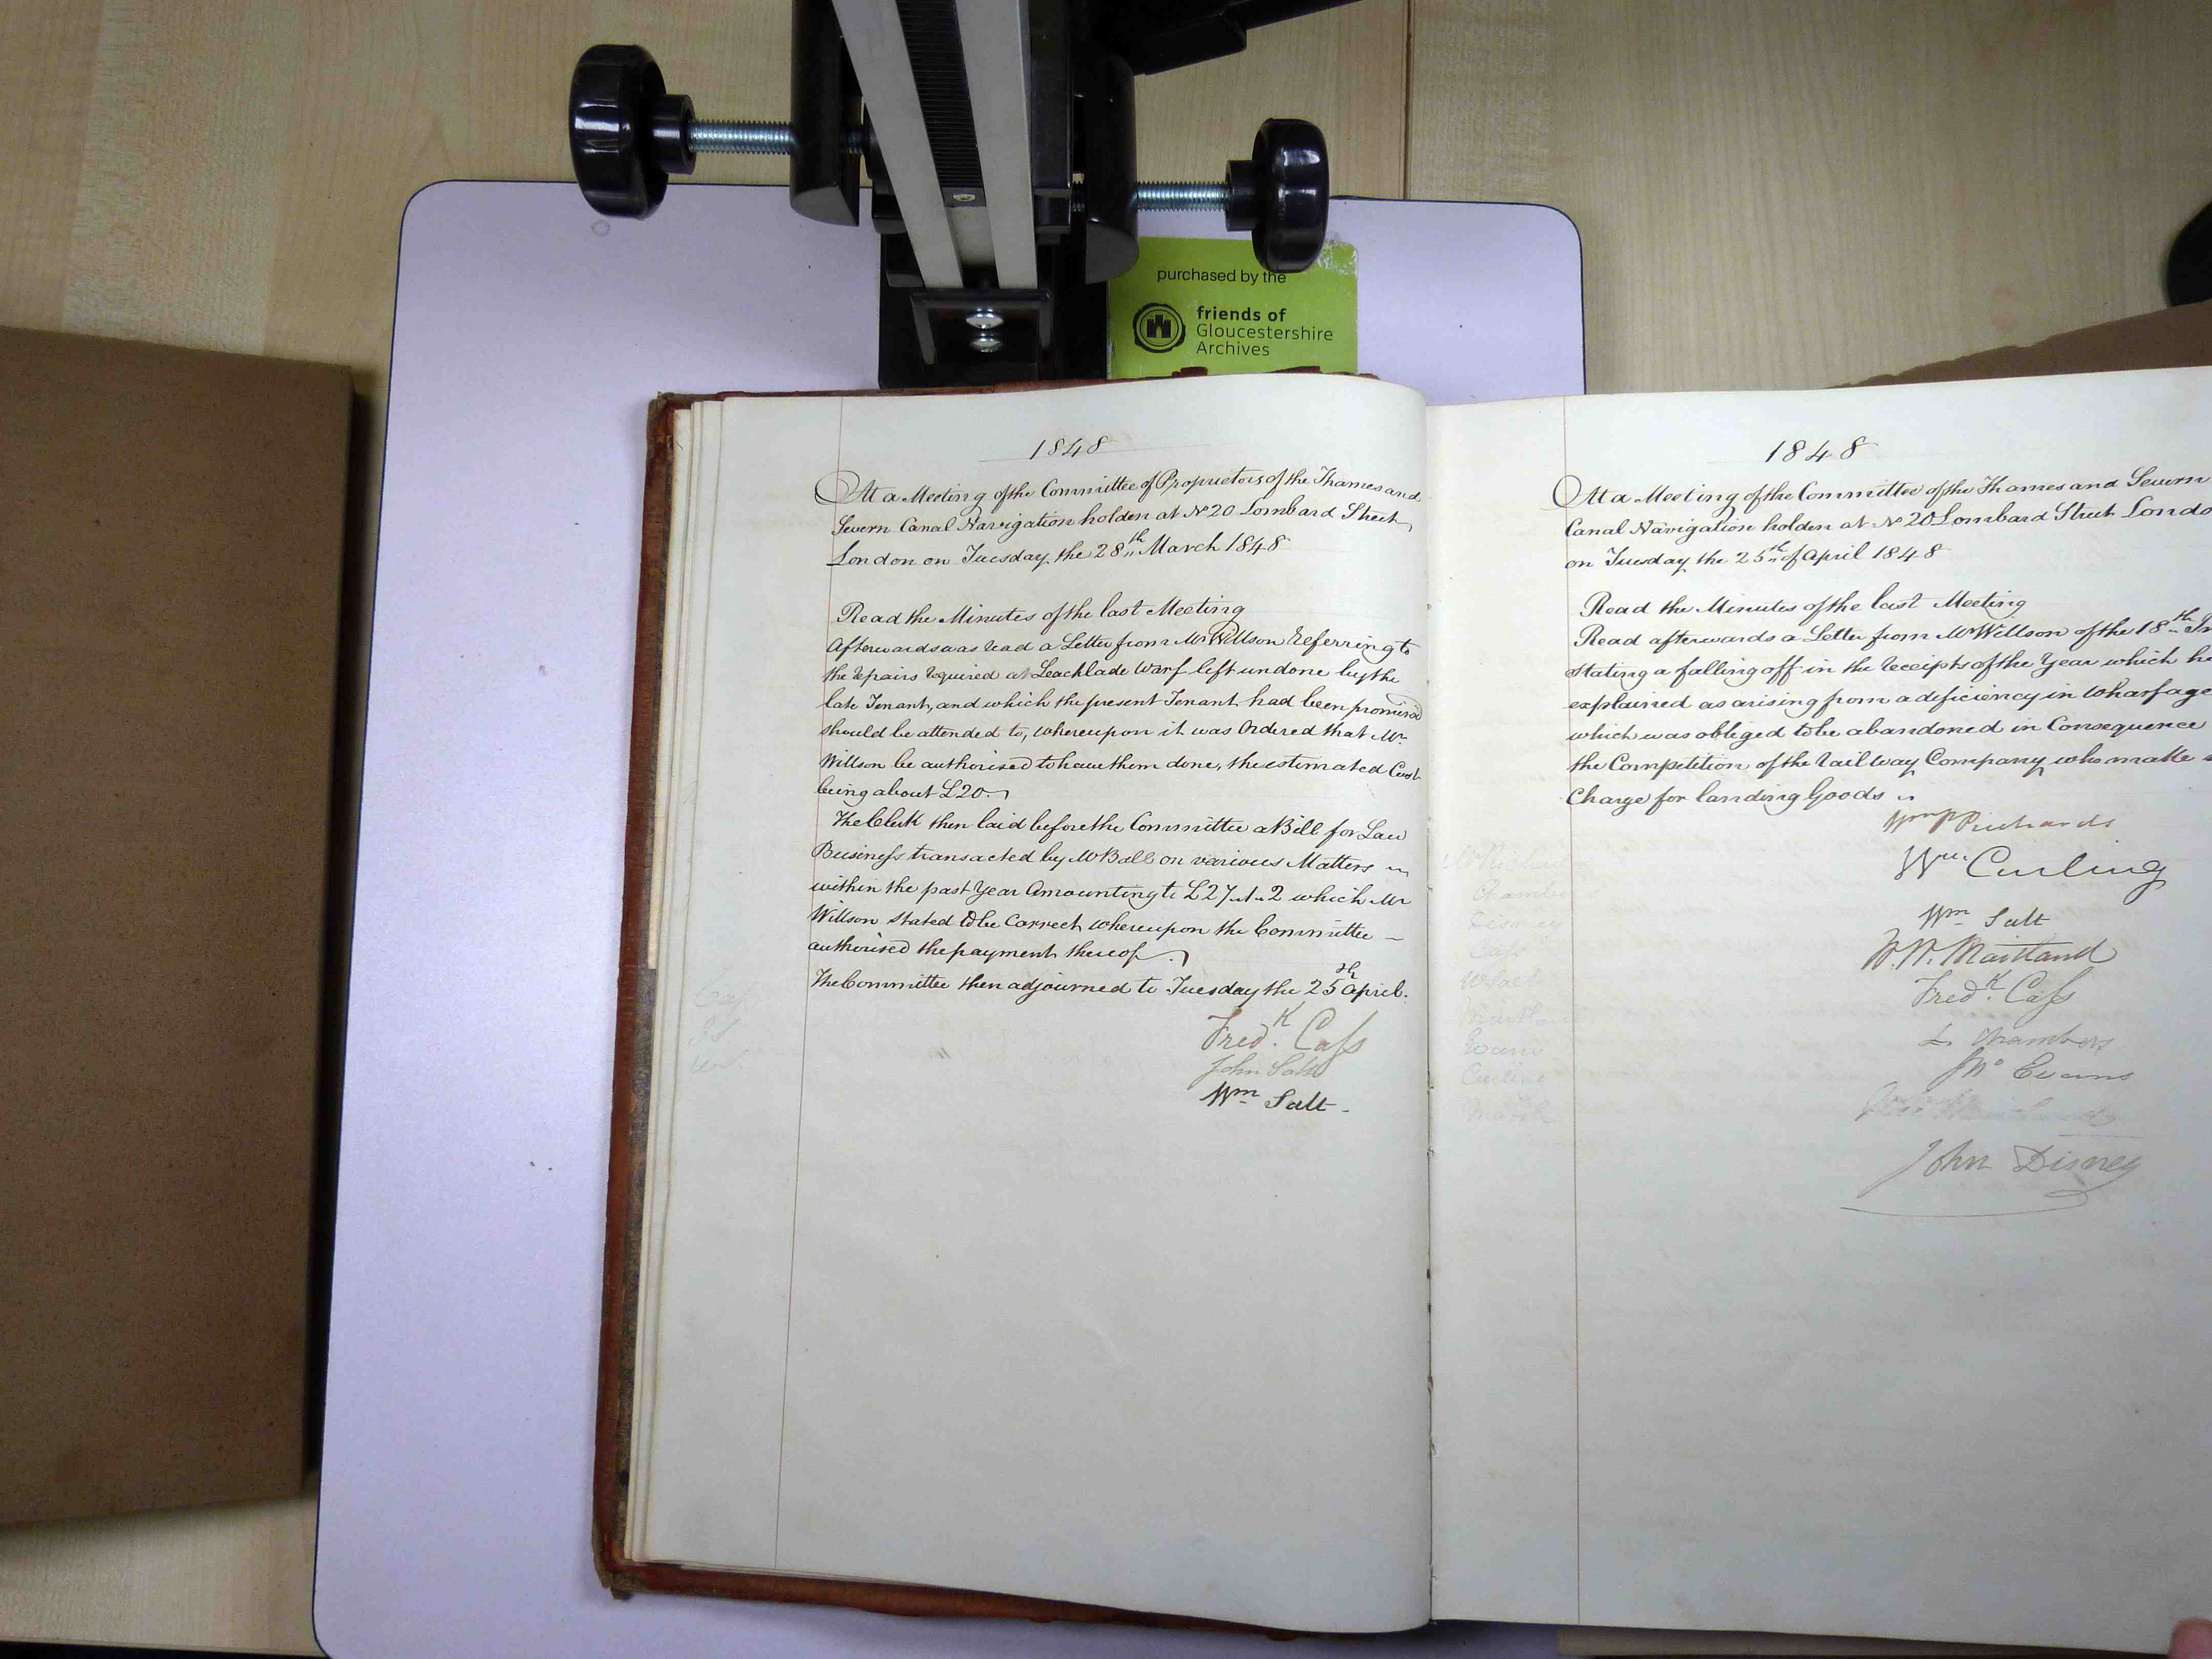 purchased by the
friends of
Gloucestershire
Archives
1848
At a Meeting of the Committee of Proprietors of the Thames and
Severn Canal Navigation holden at No 20 Lombard Street
London on Tuesday the 28th March 1848
Read the Minutes of the last Meeting
Afterwards was read a Letter from Mr Willson referring to
the repairs required at Leachlade Warf left undone by the
late Tenant, and which the present Tenant had been promised
should be attended to, whereupon it was Ordered that Mr
Willson be authorised to have them done, the estimated Cost
being about £20.
The Clerk then laid before the Committee a Bill for Law
Business transacted by Mr Ball on various Matters
within the past Year Amounting to £27.1.2 which Mr
Willson stated to be Correct whereupon the Committee
authorised the payment thereof.
The Committee then adjourned to Tuesday the 25th April.
Fredk. Cass
John
Wm Salt
1848
At a Meeting of the Committee of the Thames and Severn
Canal Navigation holden at No 20 Lombard Street Londo
on Tuesday the 25th of April 1848
Read the Minutes of the last Meeting
Read afterwards a Letter from Mr Willson of the 18th
stating a falling off in the receipts of the Year which he
explained as arising from a deficiency in Wharfage
which was obliged to be abandoned in Consequence
the Competition of the Railway Company who make
Charge for landing Goods
Wm P Richards
Wm Curling
Wm Salt
W. W. Maitland
Fredk. Cass
Chambers
Evans
John Disney
Chambers
Disney
Cass
W Salt
Maitland
Evans
Curling